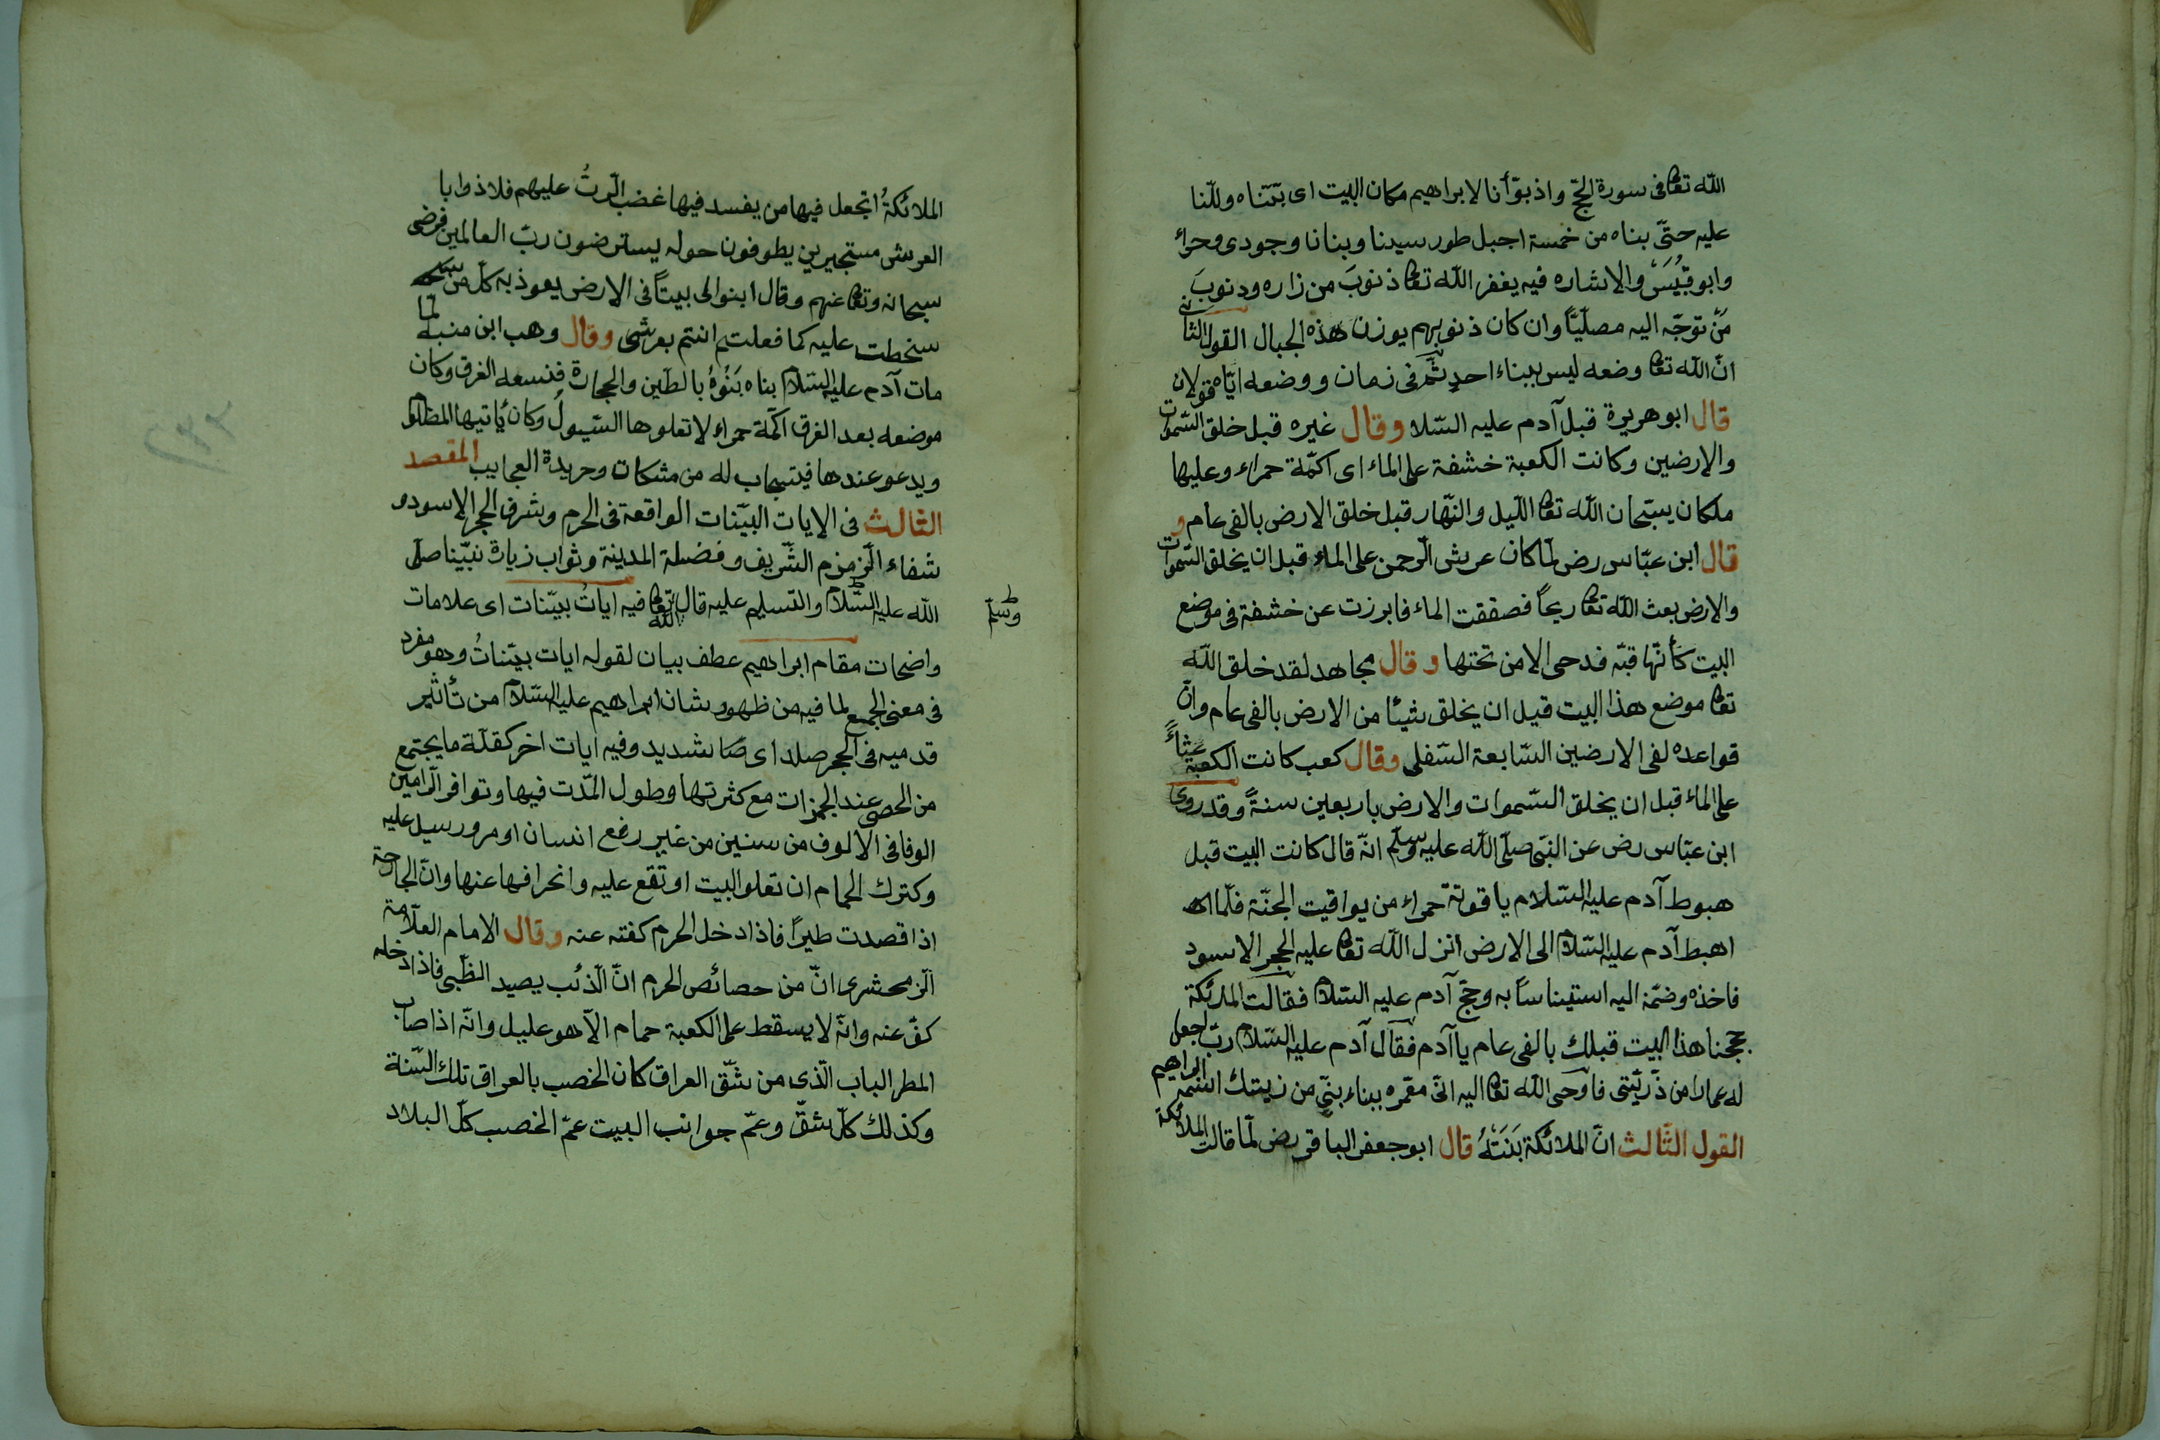 الله تعا فى سورة الحجّ واذ بوّأنا لابراهيم مكان البيت اى بيّناه وللنا
عليه حتّى بناه من خمسة اجبل طور سيدنا وبنانا وجودى وحراء
وابو قبيس والاشاره فيه يغفر الله تعا ذنوبَ من زاره وذنوبَ
مَنْ توجّه اليه مصلّيًا وان كان ذنوبهم يوزن هذه الجبال القول الثانى
انّ الله تعا وضعه ليس ببناء احدٍ ثمّ فى زمان ووضعه ايّاه قولان
قال ابو هريرة قبل آدم عليه السّلا وقال غيره قبل خلق السّموات
والارضين وكانت الكعبة خشفة على الماء اى اكمّة حمراء وعليها
ملكان يسبّحان الله تعا الليل والنّهار قبل خلق الارض بالفى عام و
قال ابن عبّاس رض لمّا كان عرش الرّحمن على الماء قبل ان يخلق السّموات
والارض بعث الله تعا ريحاً فصفقت الماء فابرزت عن خشفة فى موضع
البيت كأنّها قبّه فدحى الامن تحتها وقال مجاهد لقد خلق الله
تعا موضع هذا البيت قبل ان يخلق شيئا من الارض بالفى عام وانّ
قواعده لفى الارضين السّابعة السّفلى وقال كعب كانت الكعبة غثاءً
على الماء قبل ان يخلق السّموات والارض باربعين سنةً وقد روى
ابن عبّاس رض عن النبّى صلّى الله عليه وسلّم انّه قال كانت البيت قبل
هبوط آدم عليه السّلام ياقوتة حمراء من يواقيت الجنّة فلمّا اه
اهبط آدم عليه السّلام الى الارض انزل الله تعا عليه الحجر الاسود
فاخذه وضمّه اليه استيناساً به وحجّ آدم عليه السّلام فقالت الملائكة
حججنا هذا البيت قبلك بالفى عام يا آدم فقال آدم عليه السّلام ربّ اجعل
له عمارا من ذرّيّتى فاوحى الله تعا اليه انّى معمّره ببناء بنّىٍ من زيتك اسمه ابراهيم
القول الثّالث انّ الملائكة بَنَتْهُ قال ابو جعفر الباقر رض لمّا قالت الملائكة
الملائكةُ اتجعل فيها من يفسد فيها غضب الرّبُ عليهم فلاذوا با
العرش مستجيرين يطوفون حوله يسترضون ربّ العالمين فرضى
سبحانه وتعا عنهم وقال ابنوا لى بيتاً فى الارض يعوذ به كلّ من
سخطت عليه كما فعلتم انتم بعرشى وقال وهب ابن منبه لمّا
مات آدم عليه السّلام بناه بَنُوهُ بالطّين والحجارة فنسعه الغرق وكان
موضعه بعد الغرق اكمّة حمراء لا تعلوها السّيولُ وكان يأتيها المظلو
ويدعو عندها فيتسجاب له من مشكات وخريدة العجايب المقصد
الثالث فى الايات البيّنات الواقعة فى الحرم وشرف الحجر الاسود و
شفاء الزّمزم الشّريف وفضلة المدينة وثواب زيارة نبيّنا صلّى
الله عليه السّلام والتسليم عليه قال الله تعا فيه اياتٌ بيّنات اى علامات
وسلّم
واضحات مقام ابراهيم عطف بيان لقوله ايات بيّناتُ وهو مفرد
فى معنى الجمع لما فيه من ظهور شان ابراهيم عليه السّلام من تأثير
قدميه فى الحجر صلد اى صَا شديد وفيه ايات اخر كقلّة ما يجتمع
من الحصى عند الجمرات مع كثرتها وطول المدّت فيها وتوافر الرّامين
الوفا فى الالوف من سنين من غير رفع انسان او مرور سيل عليه
وكترك الحمام ان تعلو البيت او تقع عليه وانحرافها عنها وانّ الجارحة
اذا قصدت طيراً فاذا دخل الحرم كفته عنه وقال الامام العلّامة
الزّمحشرى انّ من حصائص الحرم انّ الذّئب يصيد الظّبى فاذا دخله
كفّ عنه وانّه لا يسقط على الكعبة حمام الاّ هو عليل وانّه اذا صاب
المطر الباب الّذى من شّق العراق كان الخصب بالعراق تلك السّنة
وكذلك كلّ شقّ وعمّ جوانب البيت عمّ الخصب كلّ البلاد